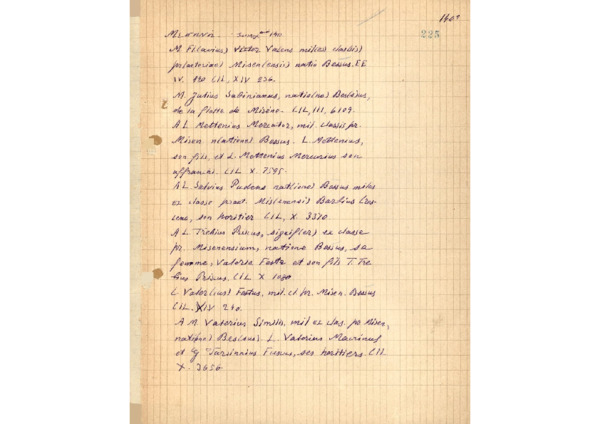 1601
225
M. Fl(avius) Victor Valens miles classis)
praetoriae) Misen(ensis) natio Bessus. EE
IV. 190 CIL, XIV 236.
M. Julius Sabinianus, natio(ne) Bessus,
de la flotte de Misène. CIL, III, 6109.
A L Mettenius Mercator, mil. classis pr.
Misen n(atione) Bessus. L. Mettenius,
son fils, et L. Mettenius Mercurius son
affranchi. CIL X. 7595.
A L. Salvius Pudens nat(ione) Bessus miles
ex classe praet. Mis(enensi)
son héritier CIL, X 3570
A L Trebius signif(er) ex classe
pr. Misenensium, natione Bessus, sa
femme, Valeria Festa et son fils T. Tre
bius Priscus, CIL X 1080
L Valer(ius) Festus, mil. cl pr. Misen. Bessus
CIL. XIV 240.
A M. Valerius mil ex clas. pr. Misen,
nat(ione) Bes(sus) L. Valerius Macrinus
et Fuscus, ses héritiers. CIL
X. 3656